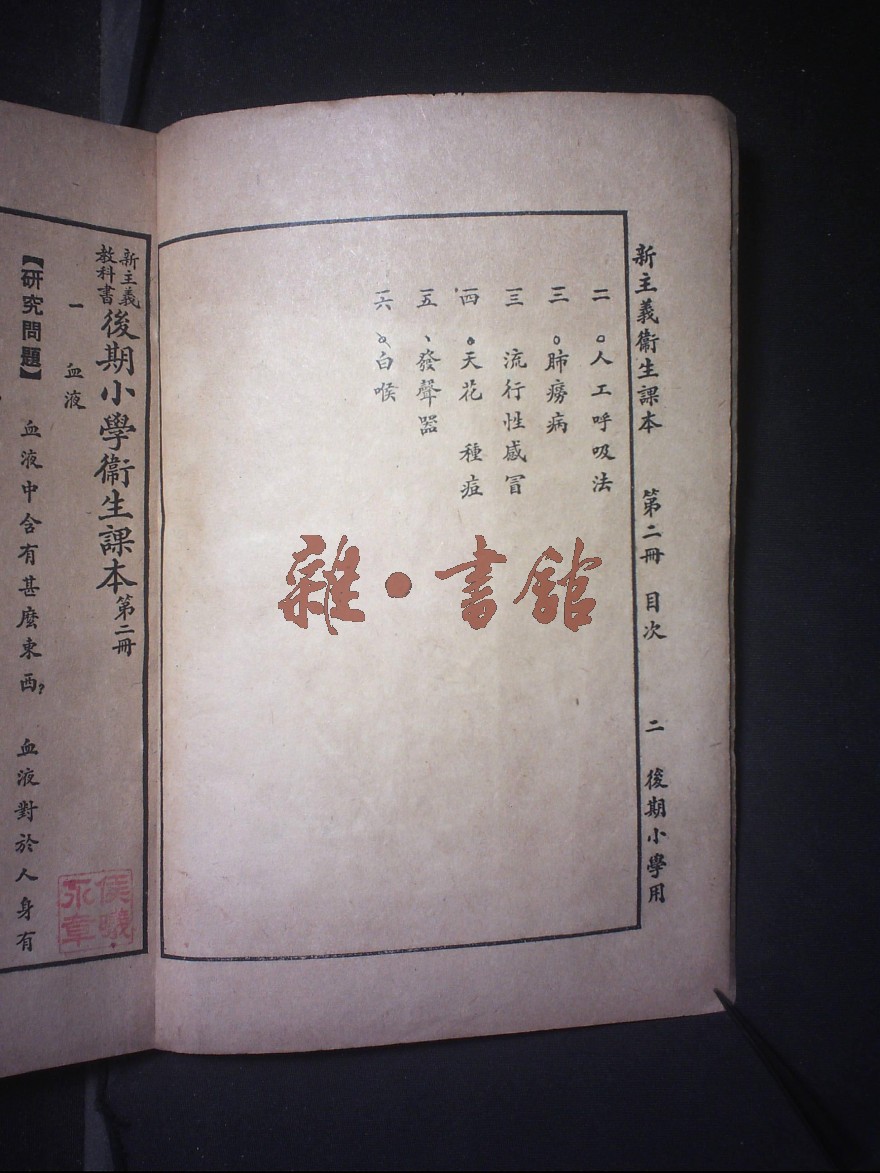 新主義衞生課本 第二冊 目次 二 後期小學用
一一 人工呼吸法
一二 肺癆病
一三 流行性感冒
一四 天花 種痘
一五 發聲器
一六 白喉
雜•書館
新主義
教科書
後期小學衞生課本第二冊
一 血液
【研究問題】 血液中含有甚麼東西? 血液對於人身有